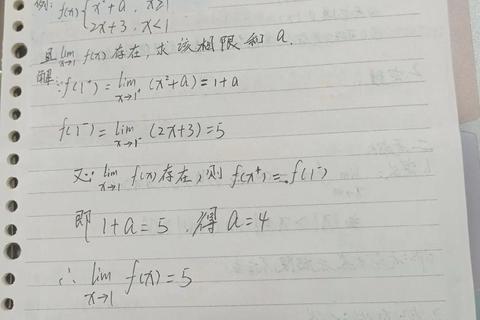 例: f(x) { x²+a , x≥1
2x+3 , x<1
且 lim x→1 f(x) 存在, 求该极限和 a.
解: ∵ f(1⁺) = lim x→1⁺ (x²+a) = 1+a
f(1⁻) = lim x→1⁻ (2x+3) = 5
又∵ lim x→1 f(x) 存在, 则 f(x⁺) = f(1⁻)
即 1+a=5 , 得 a=4
∴ lim x→1 f(x) = 5